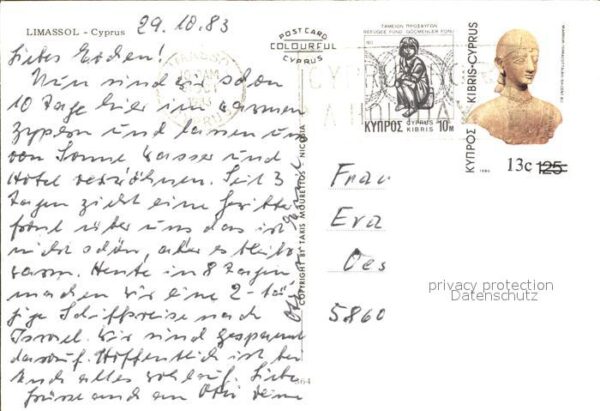 LIMASSOL - Cyprus
29.10.83
Liebes Evchen!
Nun sind wir schon
10 Tage hier im warmen
Zypern und lassen uns
von Sonne Wasser und
Hotel verwöhnen. Seit 3
Tagen zieht eine Gewitter
front über uns das ist
nicht schön, aber es bleibt
warm. Heute in 8 Tagen
machen wir eine 2-tä
gige Schiffsreise nach
Israel. Wir sind gespannt
darauf. Hoffentlich ist bei
Euch alles wohlauf. Liebe
Grüsse auch an Otti Deine
POSTCARD
COLOURFUL
CYPRUS
COPYRIGHT BY TAKIS MOURETTOS - NICOSIA
364
ΤΑΜΕΙΟΝ ΠΡΟΣΦΥΓΩΝ
REFUGEE FUND GÖÇMENLER FONU
ΚΥΠΡΟΣ CYPRUS KIBRIS 10M
ΚΥΠΡΟΣ KIBRIS-CYPRUS
13c 125
Frau
Eva
Oes
5860
privacy protection
Datenschutz